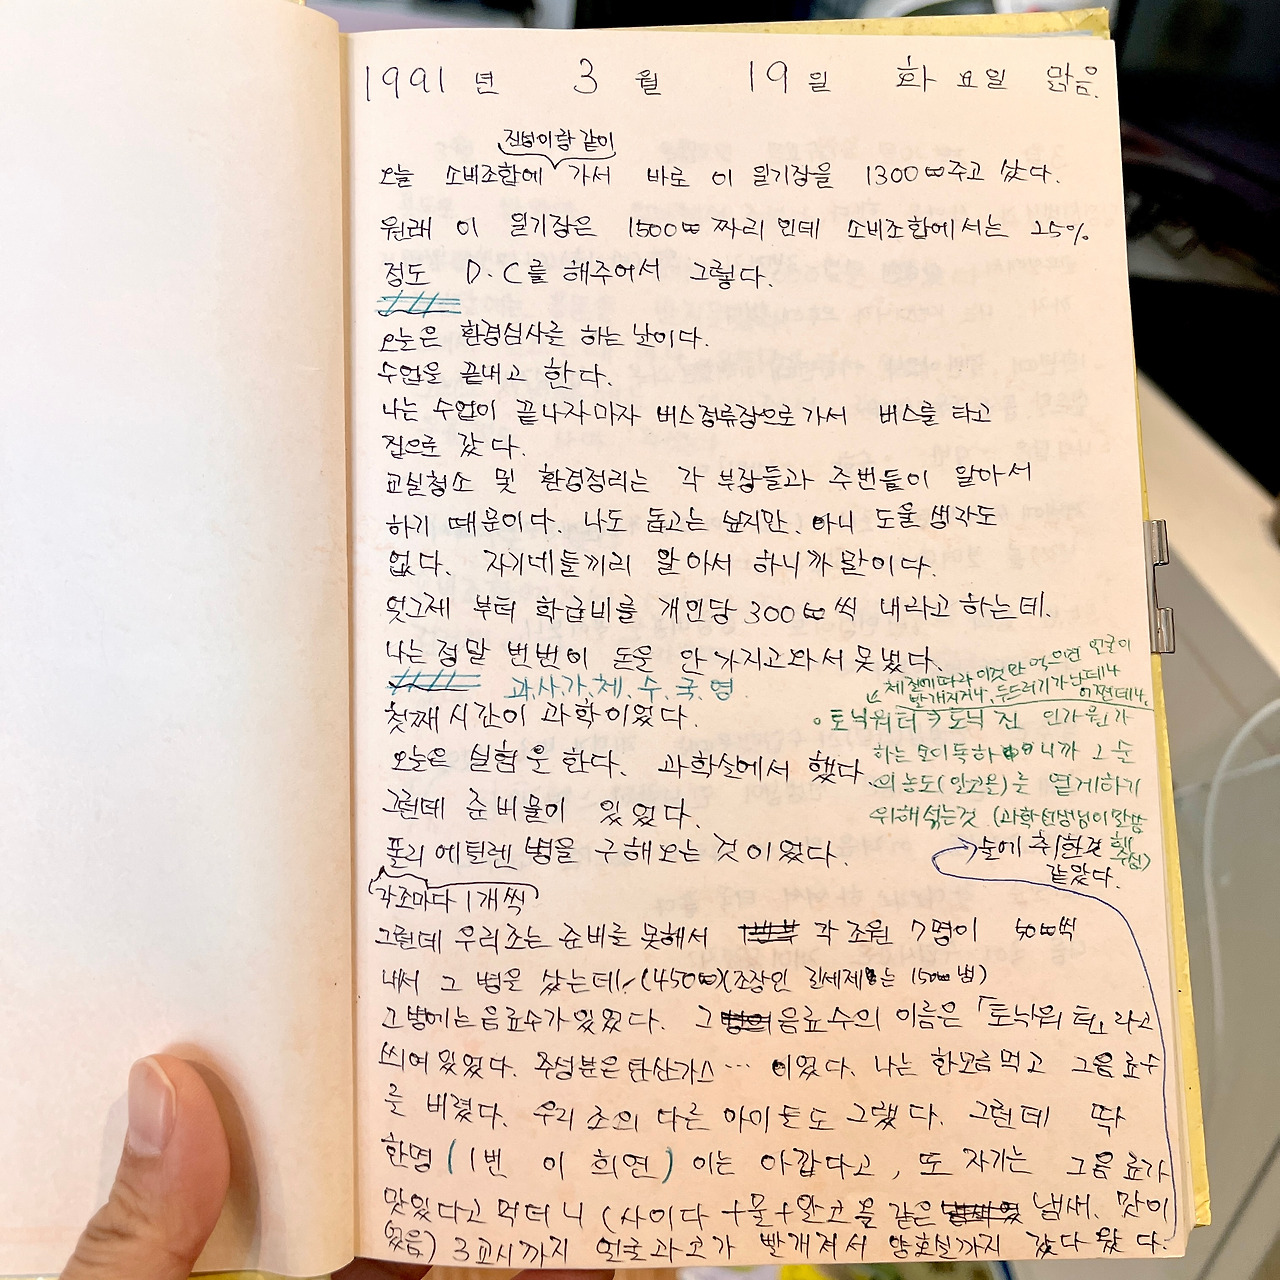 1991 년 3 월 19 일 화 요일 맑음.
진성이랑 같이
오늘 소비조합에 가서 바로 이 일기장을 1300₩주고 샀다.
원래 이 일기장은 1500₩짜리인데 소비조합에서는 25%
정도 D.C를 해주어서 그렇다.
오늘은 환경심사를 하는 날이다.
수업을 끝내고 한다.
나는 수업이 끝나자마자 버스정류장으로가서 버스를 타고
집으로 갔다.
교실청소 및 환경정리는 각 부장들과 주번들이 알아서
하기 때문이다. 나도 돕고는 싶지만, 아니 도울 생각도
없다. 자기네들끼리 알아서 하니까 말이다.
엊그제 부터 학급비를 개인당 300₩씩 내라고 하는데.
나는 정말 번번이 돈을 안가지고와서 못냈다.
과,사,가,체,수,국,영
체질에따라 이것만 먹으면 얼굴이
빨개지거나, 두드러기가 난데나
어쩐데나.
첫째 시간이 과학이었다.
토닉워터 토닉 진
오늘은 실험을 한다. 과학실에서 했다.
하는 니까 그 순
의농도(알코올)는 옅게하기
위해섞는것 (과학선생님이 말씀
해
주심)
그런데 준비물이 있었다.
폴리에틸렌 병을 구해오는 것이었다.
(각조마다 1개씩)
술에 취한것
같았다.
그런데 우리조는 준비를 못해서 각 조원 7명이 50₩씩
내서 그 병을 샀는데, (450₩)(조장인 는 150₩ 냄)
그병에는음료수가있었다. 그 음료수의 이름은 「토닉워터」라고
씌여있었다. 주성분은 탄산가스 … 이었다. 나는 한모금먹고 그음료수
를 버렸다. 우리 조의 다른 아이들도 그랬다. 그런데 딱
한명 (1번 이 희연) 이는 아깝다고, 또 자기는 그음료가
맛있다고 먹더니 (사이다+물+알코올 같은 냄새. 맛이
있음) 3교시까지 얼굴과코가 빨개져서 양호실까지 갔다 왔다.